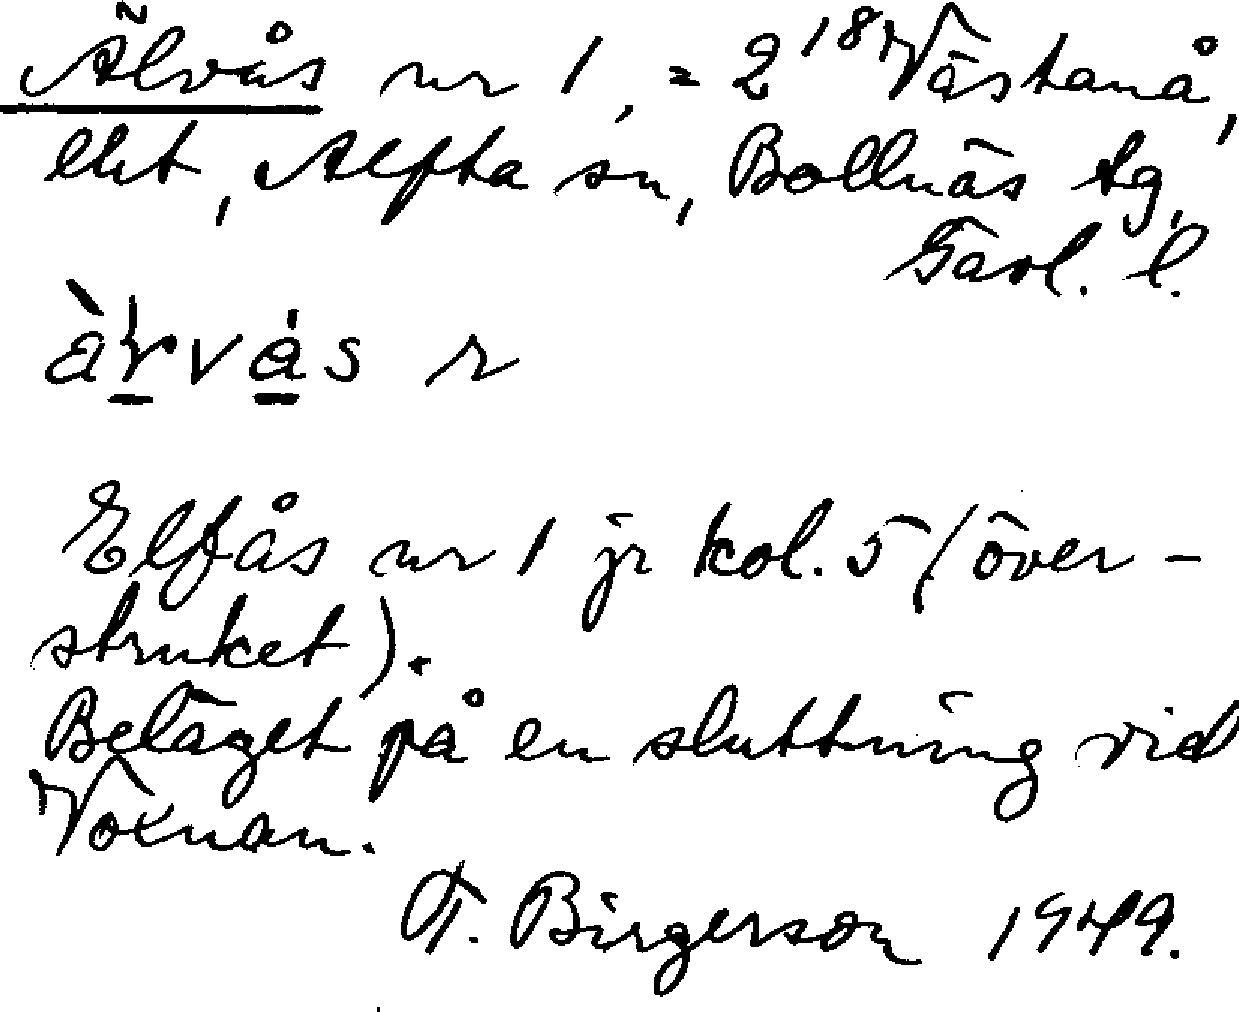 Älvås nr 1, = 2¹⁸ Västanå,
lht, Alfta sn, Bollnäs tg,
Gävl. l.
àrvas r
Elfås nr 1 jr kol. 5 (över-
struket).
Beläget på en sluttning vid
Voxnan.
T. Birgerson 1949.